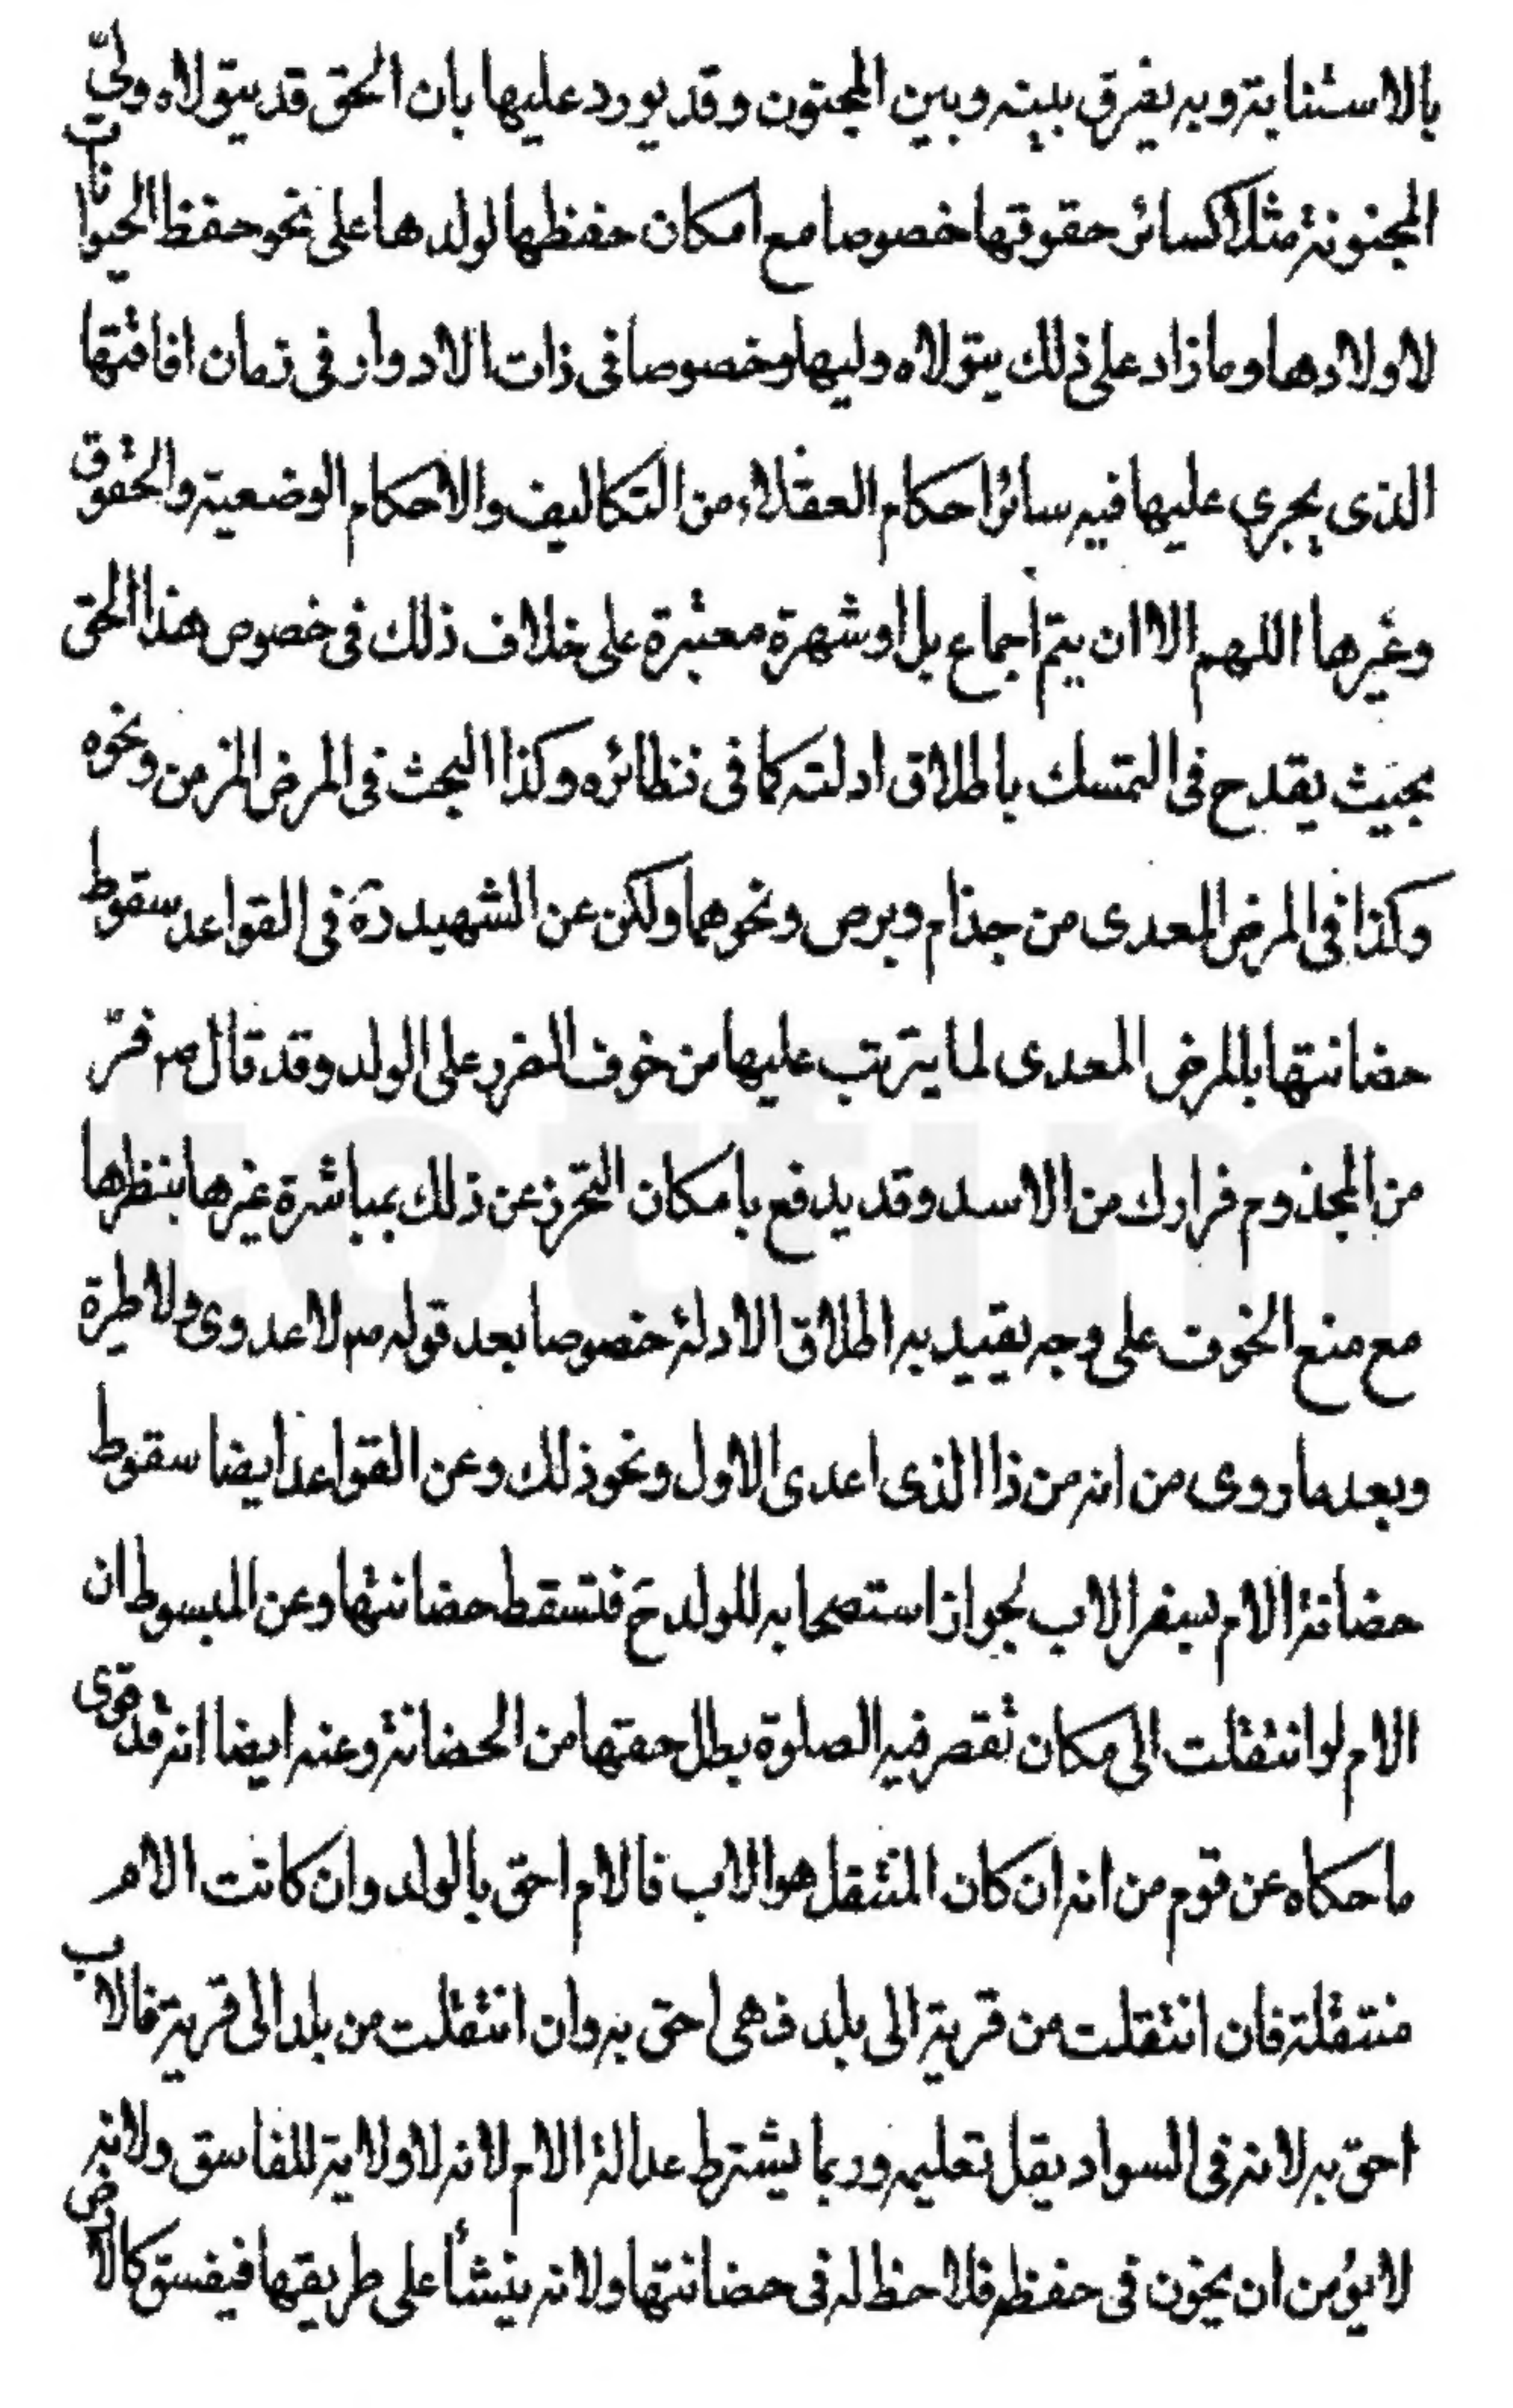 بالاستنابة وبه يفرق بينه وبين المجنون وقد يورد عليها بان الحق قد يتولاه وليّ
المجنونة مثلا كسائر حقوقها خصوصا مع امكان حفظها لولدها على نحو حفظ الحيوانات
لاولادها وما زاد على ذلك يتولاه وليها وخصوصا فى ذات الادوار فى زمان افاقتها
الذى يجرى عليها فيه سائر احكام العقلاء من التكاليف والاحكام الوضعية والحقوق
وغيرها اللهم الا ان يتم اجماع بل او شهرة معتبرة على خلاف ذلك فى خصوص هذا الحق
بحيث يقدح فى التمسك باطلاق ادلته كما فى نظائره وكذا البحث فى المرض المزمن ونحوه
وكذا فى المرض المعدى من جذام وبرص ونحوهما ولكن عن الشهيد ره فى القواعد سقوط
حضانتها بالمرض المعدى لما يترتب عليها من خوف الضرر على الولد وقد قال ص فرّ
من المجذوم فرارك من الاسد وقد يدفع بامكان التحرز عن ذلك بمباشرة غيرها بنظرها
مع منع الخوف على وجه يقييد به اطلاق الادلة خصوصا بعد قوله ص لا عدوى ولا طيرة
وبعد ما روى من انه من ذا الذى اعدى الاول ونحو ذلك وعن القواعد ايضا سقوط
حضانة الام بسفر الاب لجواز استصحابه للولد ح فتسقط حضانتها وعن المبسوط ان
الام لو انتقلت الى مكان تقصر فيه الصلوة بطل حقها من الحضانة وعنه ايضا انه قد قوى
ما حكاه عن قوم من انه ان كان المنتقل هو الاب فالام احق بالولد وان كانت الام
منتقلة فان انتقلت من قرية الى بلد فهى احق به وان انتقلت من بلد الى قرية فالاب
احق به لانه فى السواد يقل تعليمه وربما يشترط عدالة الام لانه لا ولاية للفاسق ولانه
لا يؤمن ان يخون فى حفظه فلا حظ له فى حضانتها ولانه ينشأ على طريقها فيفسق كالارض